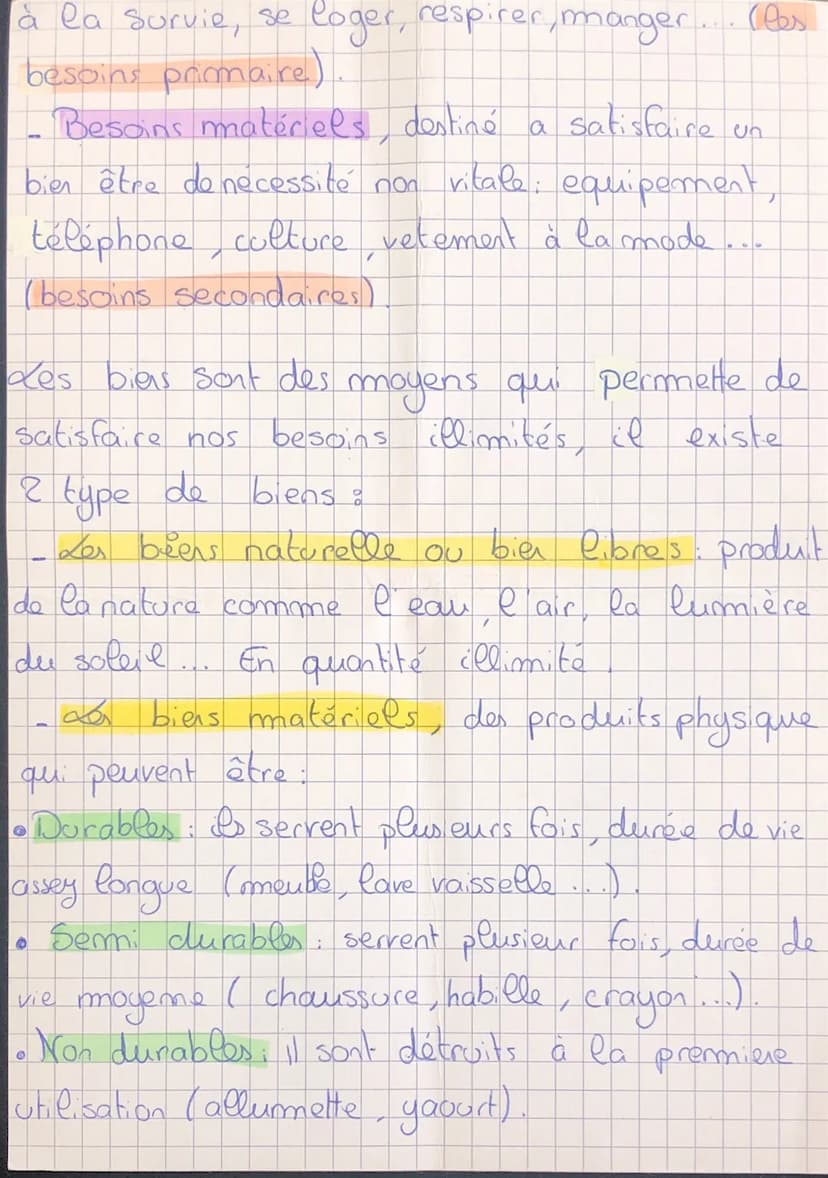 à la survie, se loger, respirer, manger... (les
besoins primaire).
- Besoins matériels, destiné a satisfaire un
bien être de necéssité non vitale : equipement,
téléphone, culture, vetement à la mode ...
(besoins secondaires).
Les biens sont des moyens qui permette de
satisfaire nos besoins illimités, il existe
2 type de biens :
- Les biens naturelle ou bien libres : produit
de la nature comme l'eau, l'air, la lumière
du soleil ... En quantité illimité.
- Les biens matériels, des produits physique
qui peuvent être :
• Durables : ils servent plusieurs fois, durée de vie
assez longue (meuble, lave vaisselle ...).
• Semi durables : servent plusieur fois, durée de
vie moyenne ( chaussure, habille, crayon ...).
• Non durables : il sont détruits à la premiere
utilisation (allumette, yaourt).